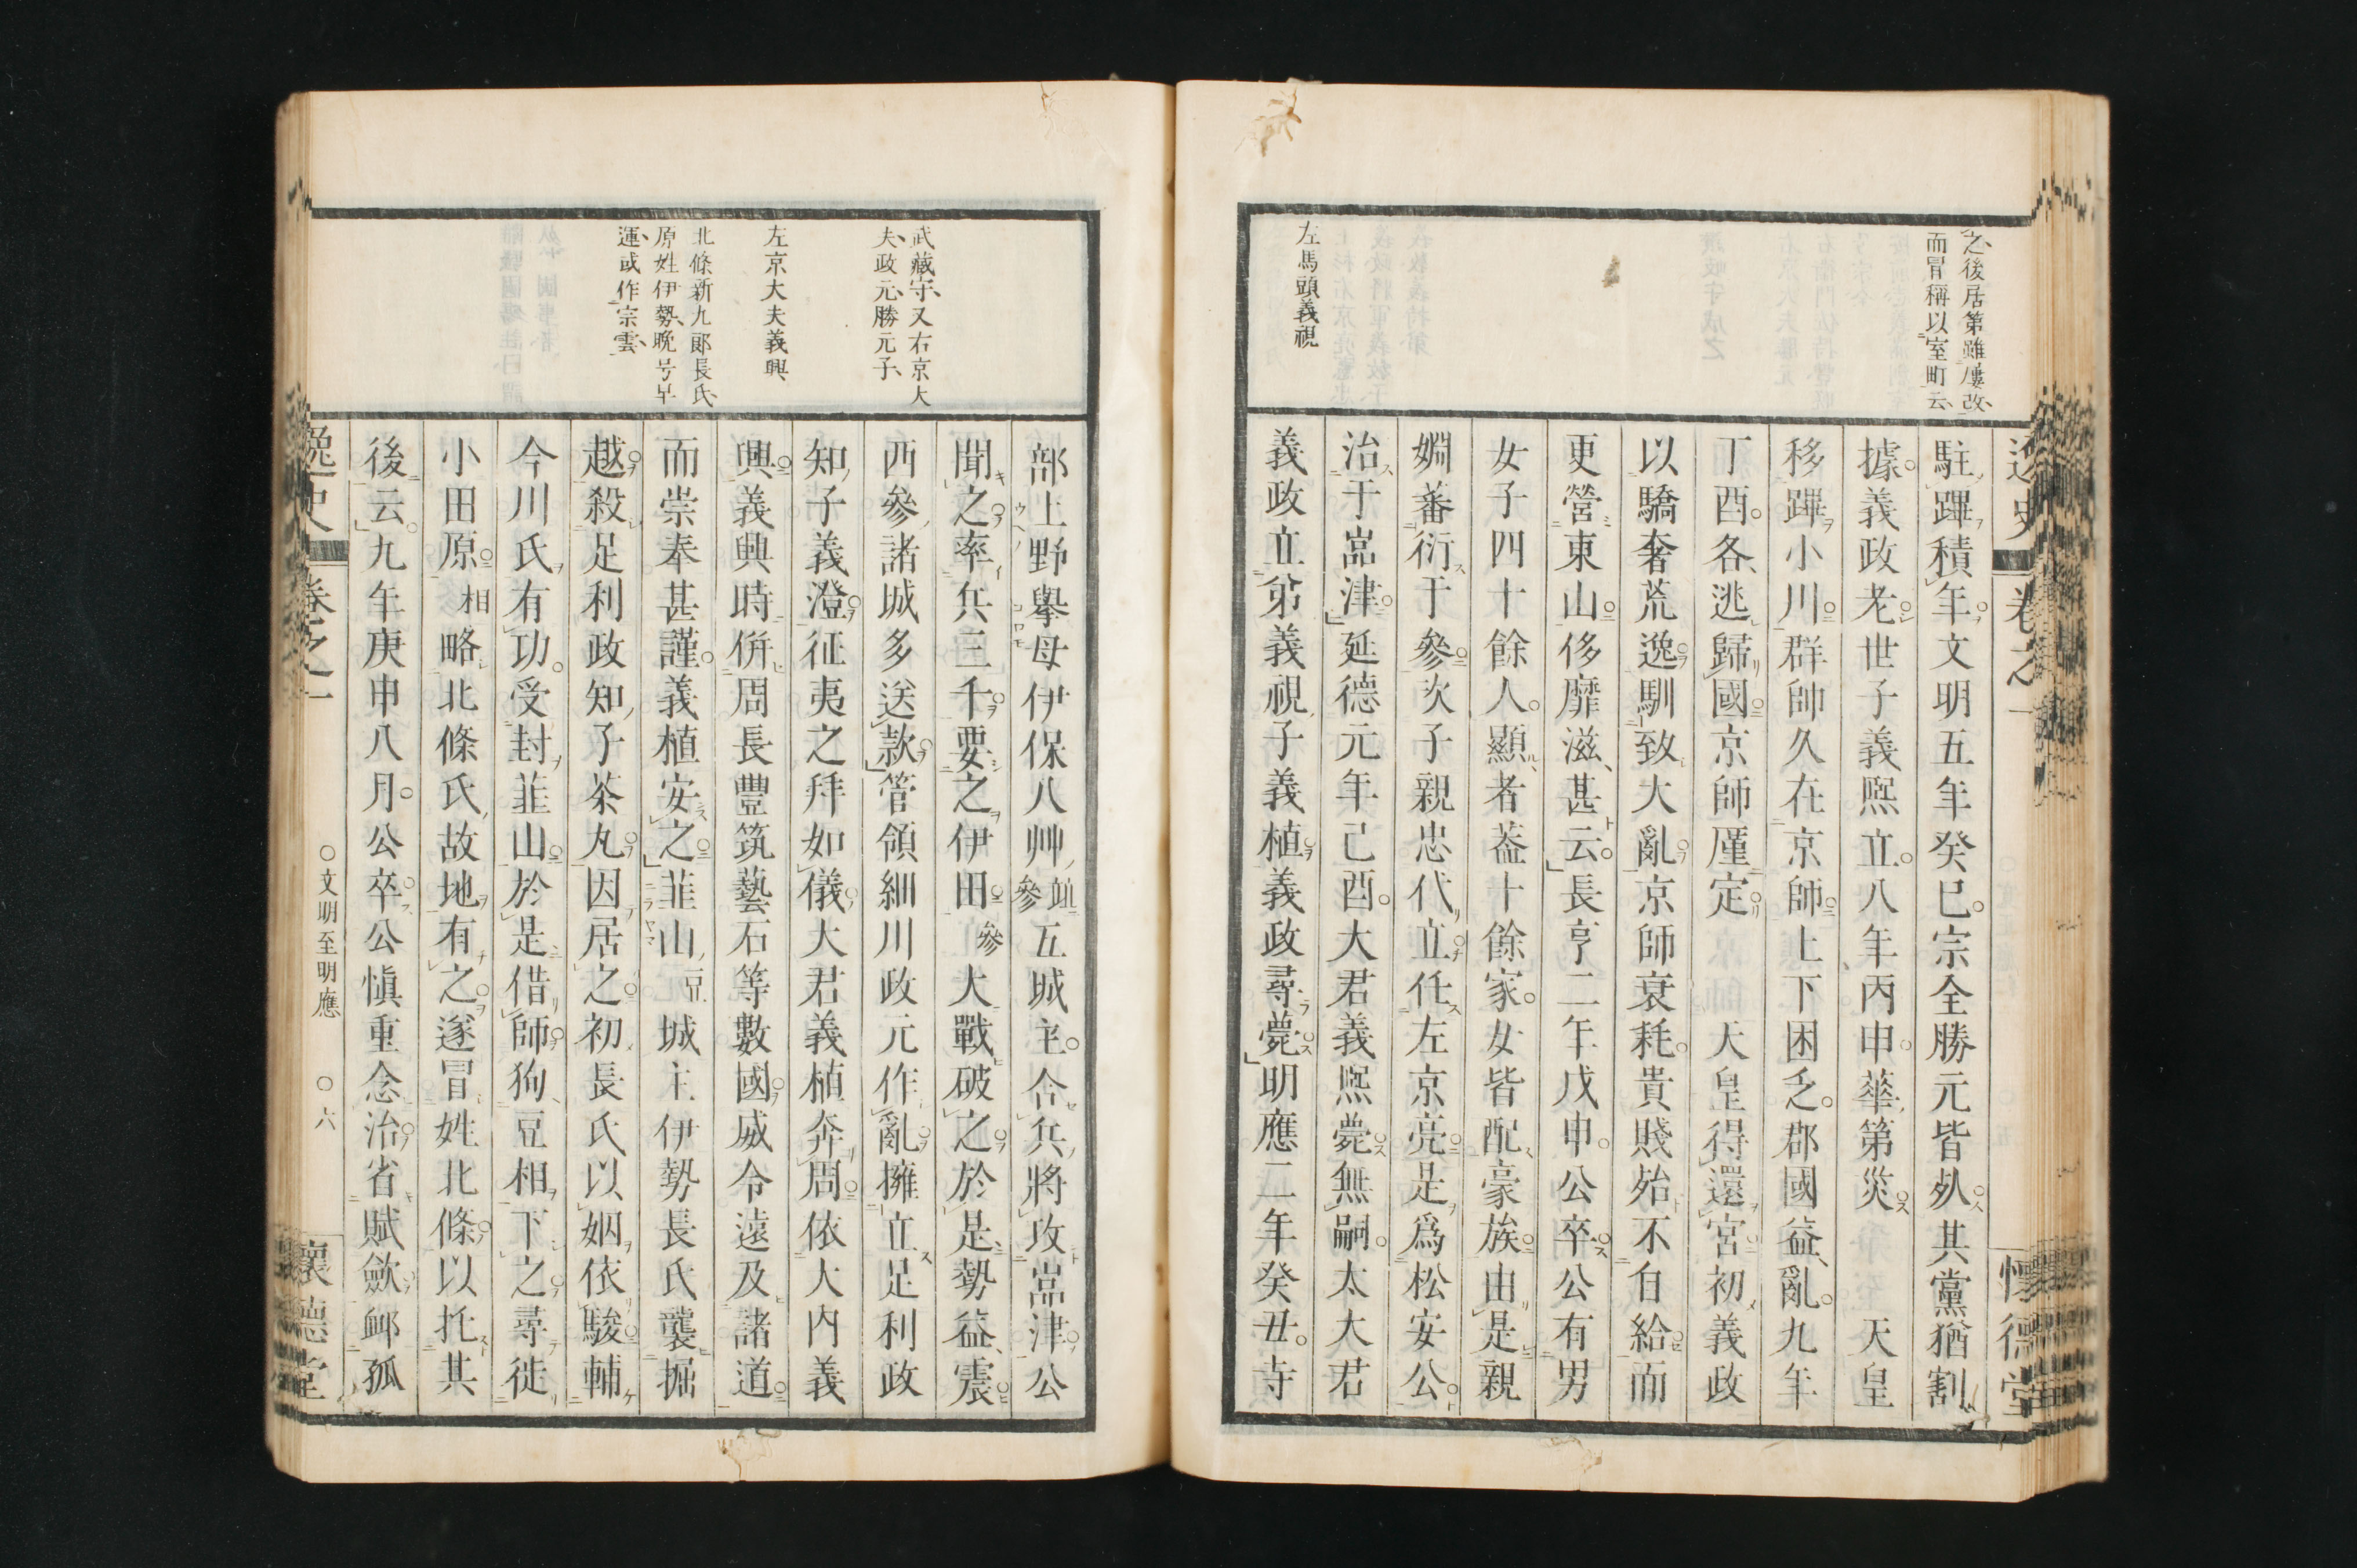 之後居第雖屢改
而冒稱以室町云
左馬頭義視
駐蹕積年文明五年癸巳宗全勝元皆死其黨猶割
據義政老世子義熙立八年丙申華第災天皇
移蹕小川群帥久在京師上下困乏郡國益亂九年
丁酉各逃歸國京師厪定天皇得還宮初義政
以驕奢荒逸馴致大亂京師衰耗貴賤殆不自給而
更營東山侈靡滋甚云長亨二年戊申公卒公有男
女子四十餘人顯者葢十餘家女皆配豪族由是親
婣蕃衍于參次子親忠代立任左京亮是爲松安公
治于嵓津延德元年己酉大君義熙薨無嗣太大君
義政立弟義視子義植義政尋薨明應二年癸丑寺
武藏守又右京大
夫政元勝元子
左京大夫義興
北條新九郎長氏
原姓伊勢晩号早
運或作宗雲
部上野擧母伊保八艸竝參五城主合兵將攻嵓津公
聞之率兵三千要之伊田參大戰破之於是勢益震
西參諸城多送款管領細川政元作亂擁立足利政
知子義澄征夷之拜如儀大君義植奔周依大内義
興義興時併周長豐筑藝石等數國威令遠及諸道
而崇奉甚謹義植安之韮山豆城主伊勢長氏襲掘
越殺足利政知子茶丸因居之初長氏以姻依駿輔
今川氏有功受封韮山於是借師狥豆相下之尋徙
小田原相略北條氏故地有之遂冒姓北條以托其
後云九年庚申八月公卒公愼重念治省賦歛䘏孤
逸史 卷之一 ○文明至明應 ○六 懷德堂